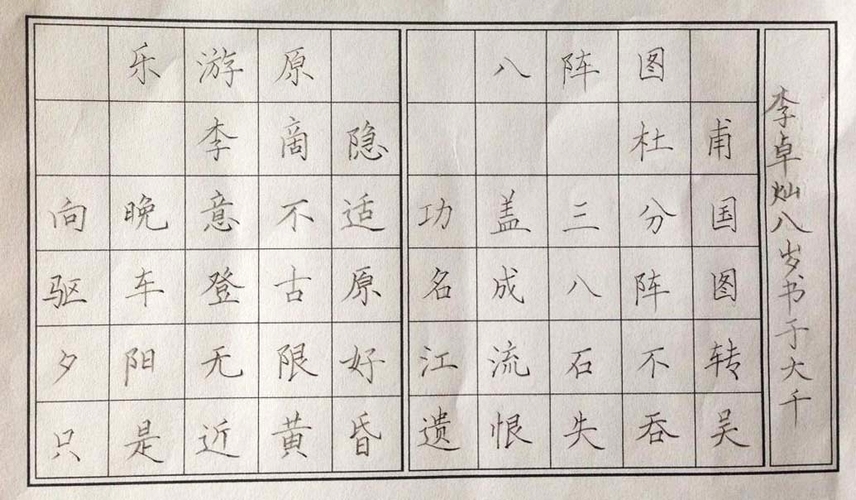 乐游原
李商隐
向晚意不适
驱车登古原
夕阳无限好
只是近黄昏
八阵图
杜甫
功盖三分国
名成八阵图
江流石不转
遗恨失吞吴
李卓灿八岁书于大千